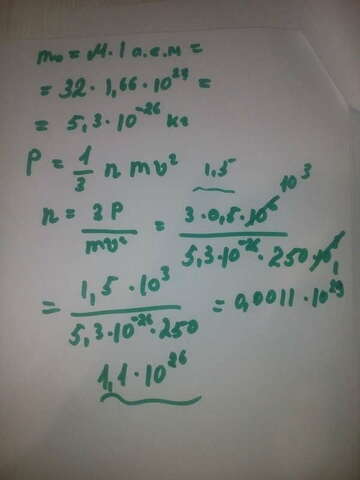 m₀ = M · 1 а.е.м =
= 32 · 1,66 · 10²⁷ =
= 5,3 · 10⁻²⁶ кг
P = 1/3 n mv²
1,5
10³
n = 3P/mv² = 3 · 0,5 · 10⁶/5,3 · 10⁻²⁶ · 250 · 10³
1
= 1,5 · 10³/5,3 · 10⁻²⁶ · 250 = 0,0011 · 10²⁹
1,1 · 10²⁶